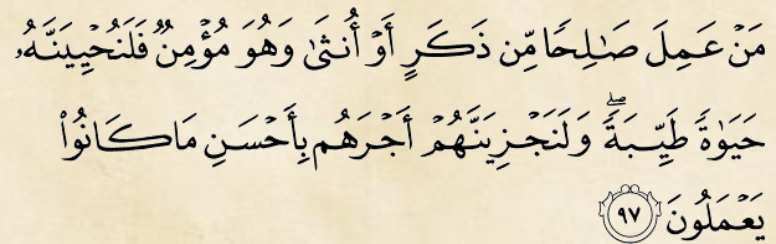 مَنْ عَمِلَ صَـٰلِحًا مِّن ذَكَرٍ أَوْ أُنثَىٰ وَهُوَ مُؤْمِنٌ فَلَنُحْيِيَنَّهُۥ
حَيَوٰةً طَيِّبَةً ۖ وَلَنَجْزِيَنَّهُمْ أَجْرَهُم بِأَحْسَنِ مَا كَانُوا۟
يَعْمَلُونَ ٩٧